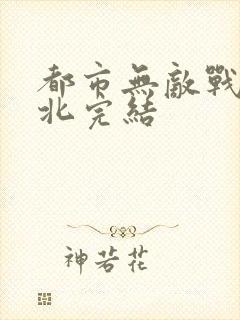 都市無敵戰
北完結
神若花